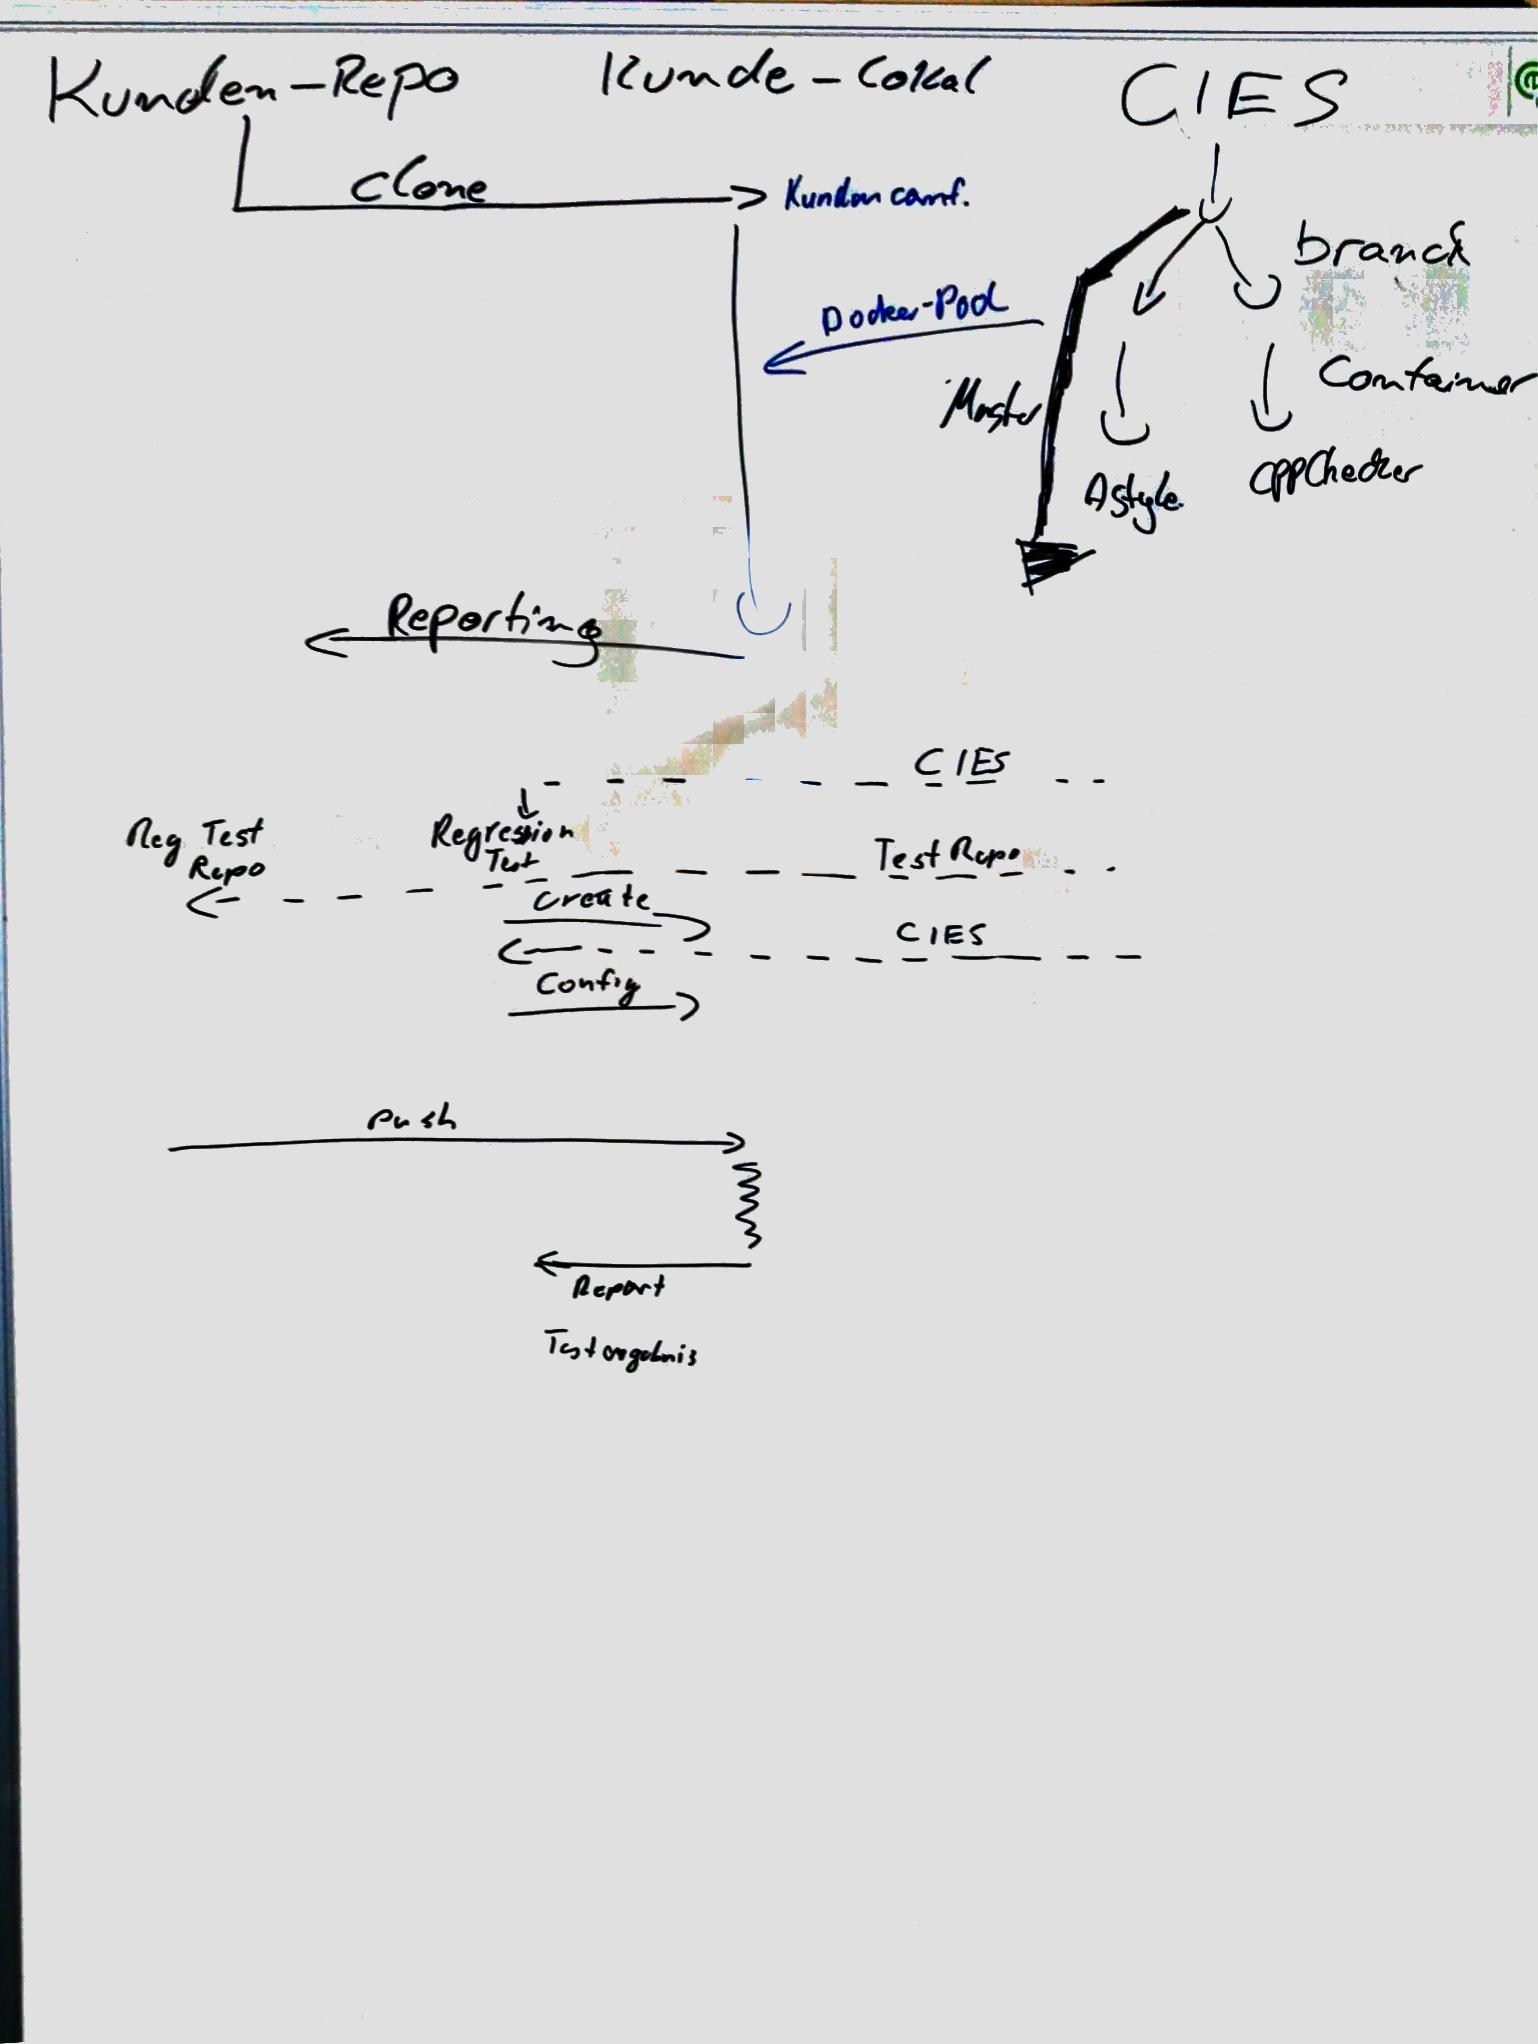 Kunden-Repo Kunde-Lokal CIES
Clone
Kunden conf.
branch
Docker-Pod
Master
Container
Astyle
CPPChecker
Reporting
CIES
Reg Test
Repo
Regression
Test
Test Repo
Create
CIES
Config
push
Report
Testergebnis